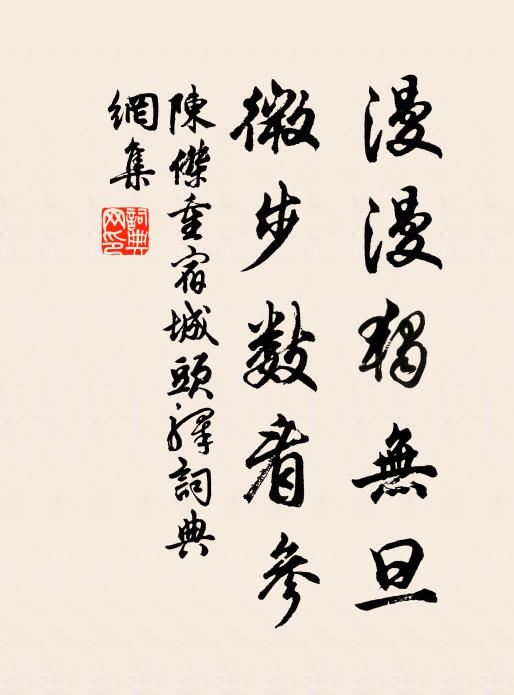 漫漫獨無旦
微步數看參
陳傑重宿城頭釋詞典
網集
詞典
网印